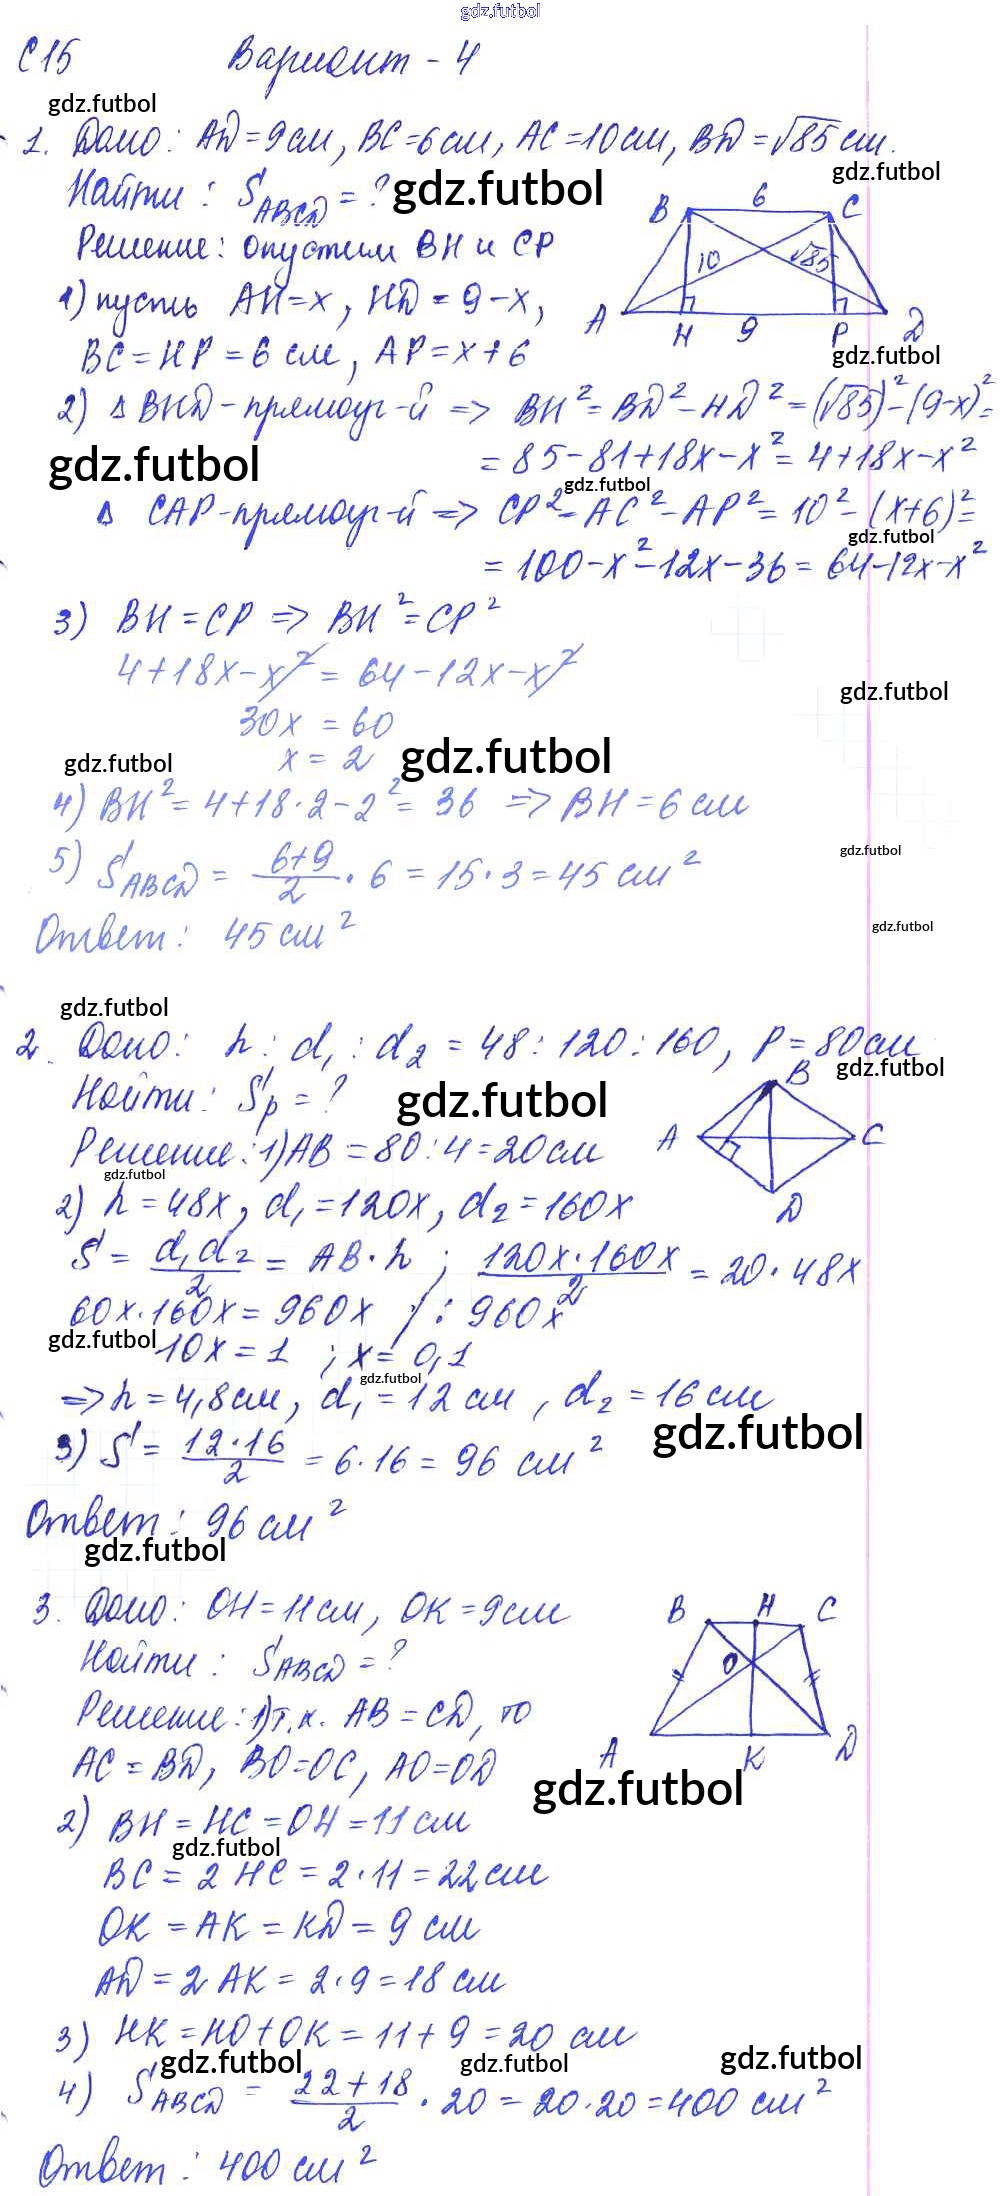 gdz.futbol
С15 Вариант - 4
gdz.futbol
1. Дано: AD = 9 см, BC = 6 см, AC = 10 см, BD = √85 см.
gdz.futbol
Найти: S_ABCD = ?
gdz.futbol
B 6 C
Решение: Опустим BH и CP
10 √85
1) пусть AH = x, HD = 9 - x,
A H 9 P D
BC = HP = 6 см, AP = x + 6
gdz.futbol
2) Δ BHD - прямоуг-й => BH² = BD² - HD² = (√85)² - (9-x)² =
gdz.futbol
= 85 - 81 + 18x - x² = 4 + 18x - x²
gdz.futbol
Δ CAP - прямоуг-й => CP² = AC² - AP² = 10² - (x+6)² =
gdz.futbol
= 100 - x² - 12x - 36 = 64 - 12x - x²
3) BH = CP => BH² = CP²
4 + 18x - x² = 64 - 12x - x²
gdz.futbol
30x = 60
gdz.futbol
gdz.futbol
x = 2
4) BH² = 4 + 18·2 - 2² = 36 => BH = 6 см
gdz.futbol
5) S_ABCD = (6+9)/2 · 6 = 15·3 = 45 см²
gdz.futbol
Ответ: 45 см²
gdz.futbol
2. Дано: h : d₁ : d₂ = 48 : 120 : 160, P = 80 см
gdz.futbol
Найти: Sp = ?
gdz.futbol
B
A C
D
Решение: 1) AB = 80 : 4 = 20 см
gdz.futbol
2) h = 48x, d₁ = 120x, d₂ = 160x
S = d₁d₂/2 = AB·h ; 120x·160x/2 = 20·48x
60x·160x = 960x /: 960x
gdz.futbol
10x = 1 ; x = 0,1
gdz.futbol
=> h = 4,8 см, d₁ = 12 см, d₂ = 16 см
gdz.futbol
3) S = 12·16/2 = 6·16 = 96 см²
Ответ: 96 см²
gdz.futbol
3. Дано: OH = 11 см, OK = 9 см
B H C
Найти: S_ABCD = ?
O
Решение: 1) т.к. AB = CD, то
A K D
AC = BD, BO = OC, AO = OD
gdz.futbol
2) BH = HC = OH = 11 см
gdz.futbol
BC = 2 HC = 2·11 = 22 см
OK = AK = KD = 9 см
AD = 2 AK = 2·9 = 18 см
3) HK = HO + OK = 11 + 9 = 20 см
gdz.futbol
gdz.futbol
gdz.futbol
4) S_ABCD = (22+18)/2 · 20 = 20·20 = 400 см²
Ответ: 400 см²